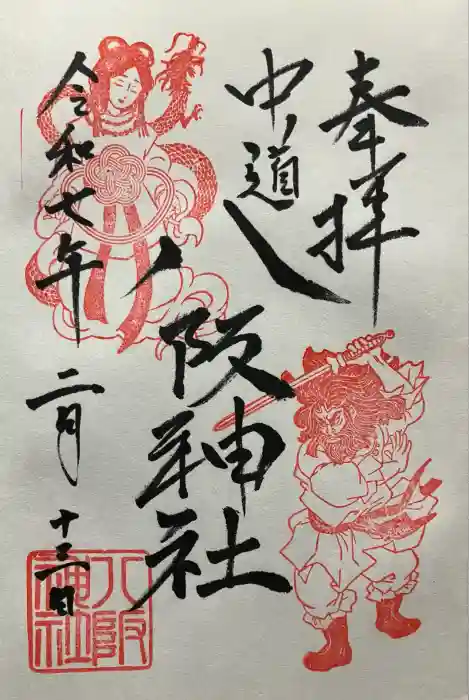 奉拝
中道
八阪神社
令和七年二月十三日
八阪神社